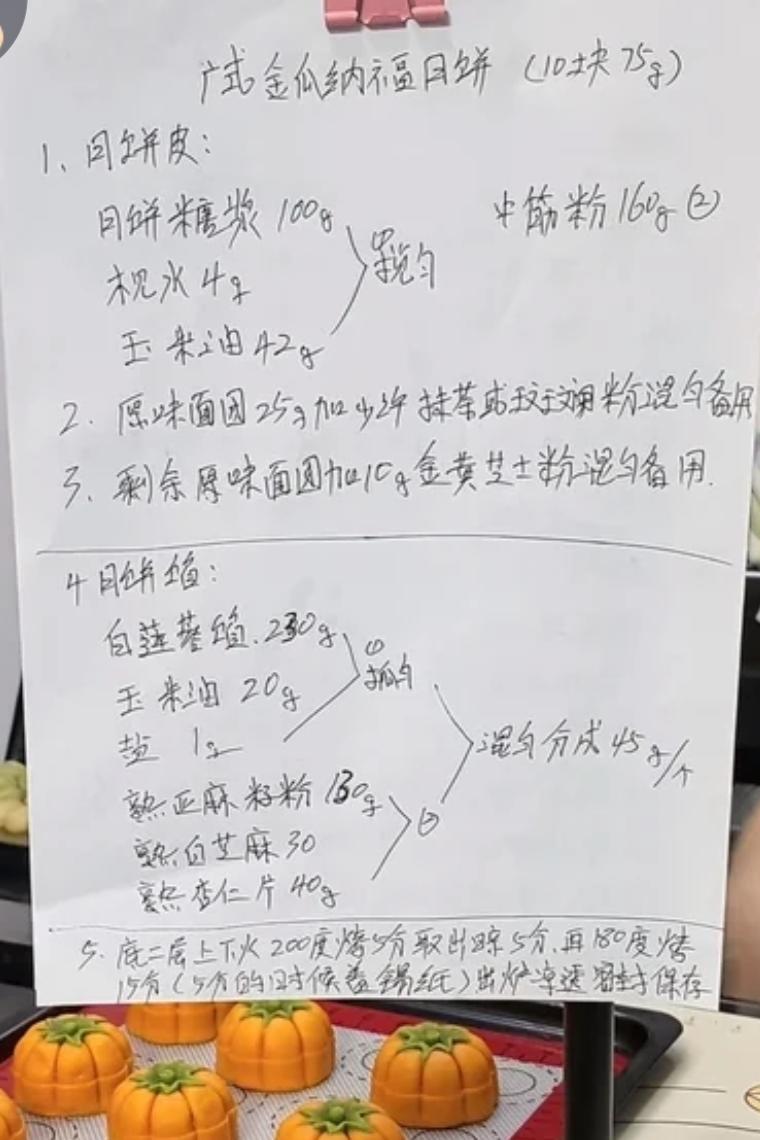 广式金瓜纳福月饼（10块75g）
1、月饼皮：
月饼糖浆 100g
中筋粉 160g ②
枧水 4g
① 搅匀
玉米油 42g
2、原味面团25g加少许抹茶或斑斓粉混匀备用
3、剩余原味面团加10g金黄芝士粉混匀备用.
4 月饼馅：
白莲蓉馅.230g
① 抓匀
玉米油 20g
盐 1g
混匀分成45g/个
熟亚麻籽粉 130g
②
熟白芝麻 30
熟杏仁片 40g
5、底二层上下火200度烤5分取出晾5分.再180度烤
15分（5分的时候盖锡纸）出炉凉透密封保存